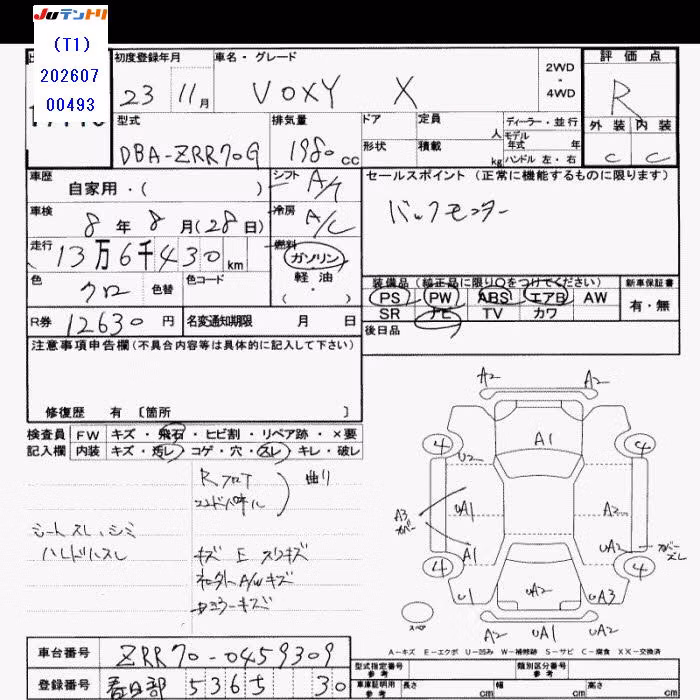 Juテントリ
(T1)
202607
00493
初度登録年月
車名・グレード
評価点
23 11月
VOXY X
2WD
・
4WD
R
型式
排気量
ドア
定員
人
ディーラー・並行
外装 内装
DBA-ZRR70G
1980 cc
形状
積載
kg
モデル年式 年
ハンドル 左・右
C C
車歴
自家用・( )
シフト A/T
セールスポイント (正常に機能するものに限ります)
車検
8年8月(28日)
冷房 A/C
バックモニター
走行
13万6千430km
燃料
ガソリン
軽油
・( )
色
クロ
色替
色コード
装備品 (純正品に限り○をつけてください)
新車保証書
PS PW ABS エアB AW
有・無
SR ナビ TV カワ
R券 12630円
名変通知期限 月 日
後日品
注意事項申告欄(不具合内容等は具体的に記入して下さい)
修復歴 有 〔箇所 〕
検査員 FW キズ・飛石・ヒビ割・リペア跡・×要
記入欄 内装 キズ・汚レ・コゲ・穴・スレ・キレ・破レ
Rフロア
エンドパネル
曲り
シートスレ、シミ
ハンドルスレ
キズ E スリキズ
A/Wキズ
A2 A2
A1
4 4
U2
A3
カバー
UA1
A2
A1
UA2
カバースレ
4 4
UA2
U1
UA3
A2 UA1 A2
スペア
A-キズ E-エクボ U-凹み W-補修跡 S-サビ C-腐食 XX-交換済
車台番号 ZRR70-0459309
型式指定番号
参考
類別区分番号
参考
登録番号 春日部 5365 30
車庫証明用
参考
長さ cm
幅 cm
高さ cm